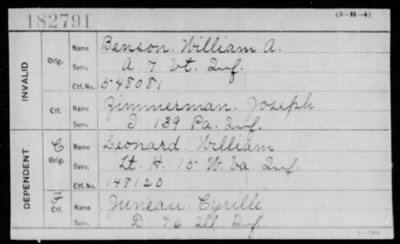 182791
(3-H-4)
INVALID
Orig.
Name Benson. William A.
Serv. A 7 Vt. Inf.
Ctf. No. 548081
Ctf.
Name Zimmerman. Joseph
Serv. I 139 Pa. Inf.
DEPENDENT
C
Orig.
Name Leonard. William
Serv. Lt. H. 10 W. Va. Inf.
Ctf. No. 148120
Ctf.
Name Juneau. Cyrille
Serv. D 76 Ill Inf